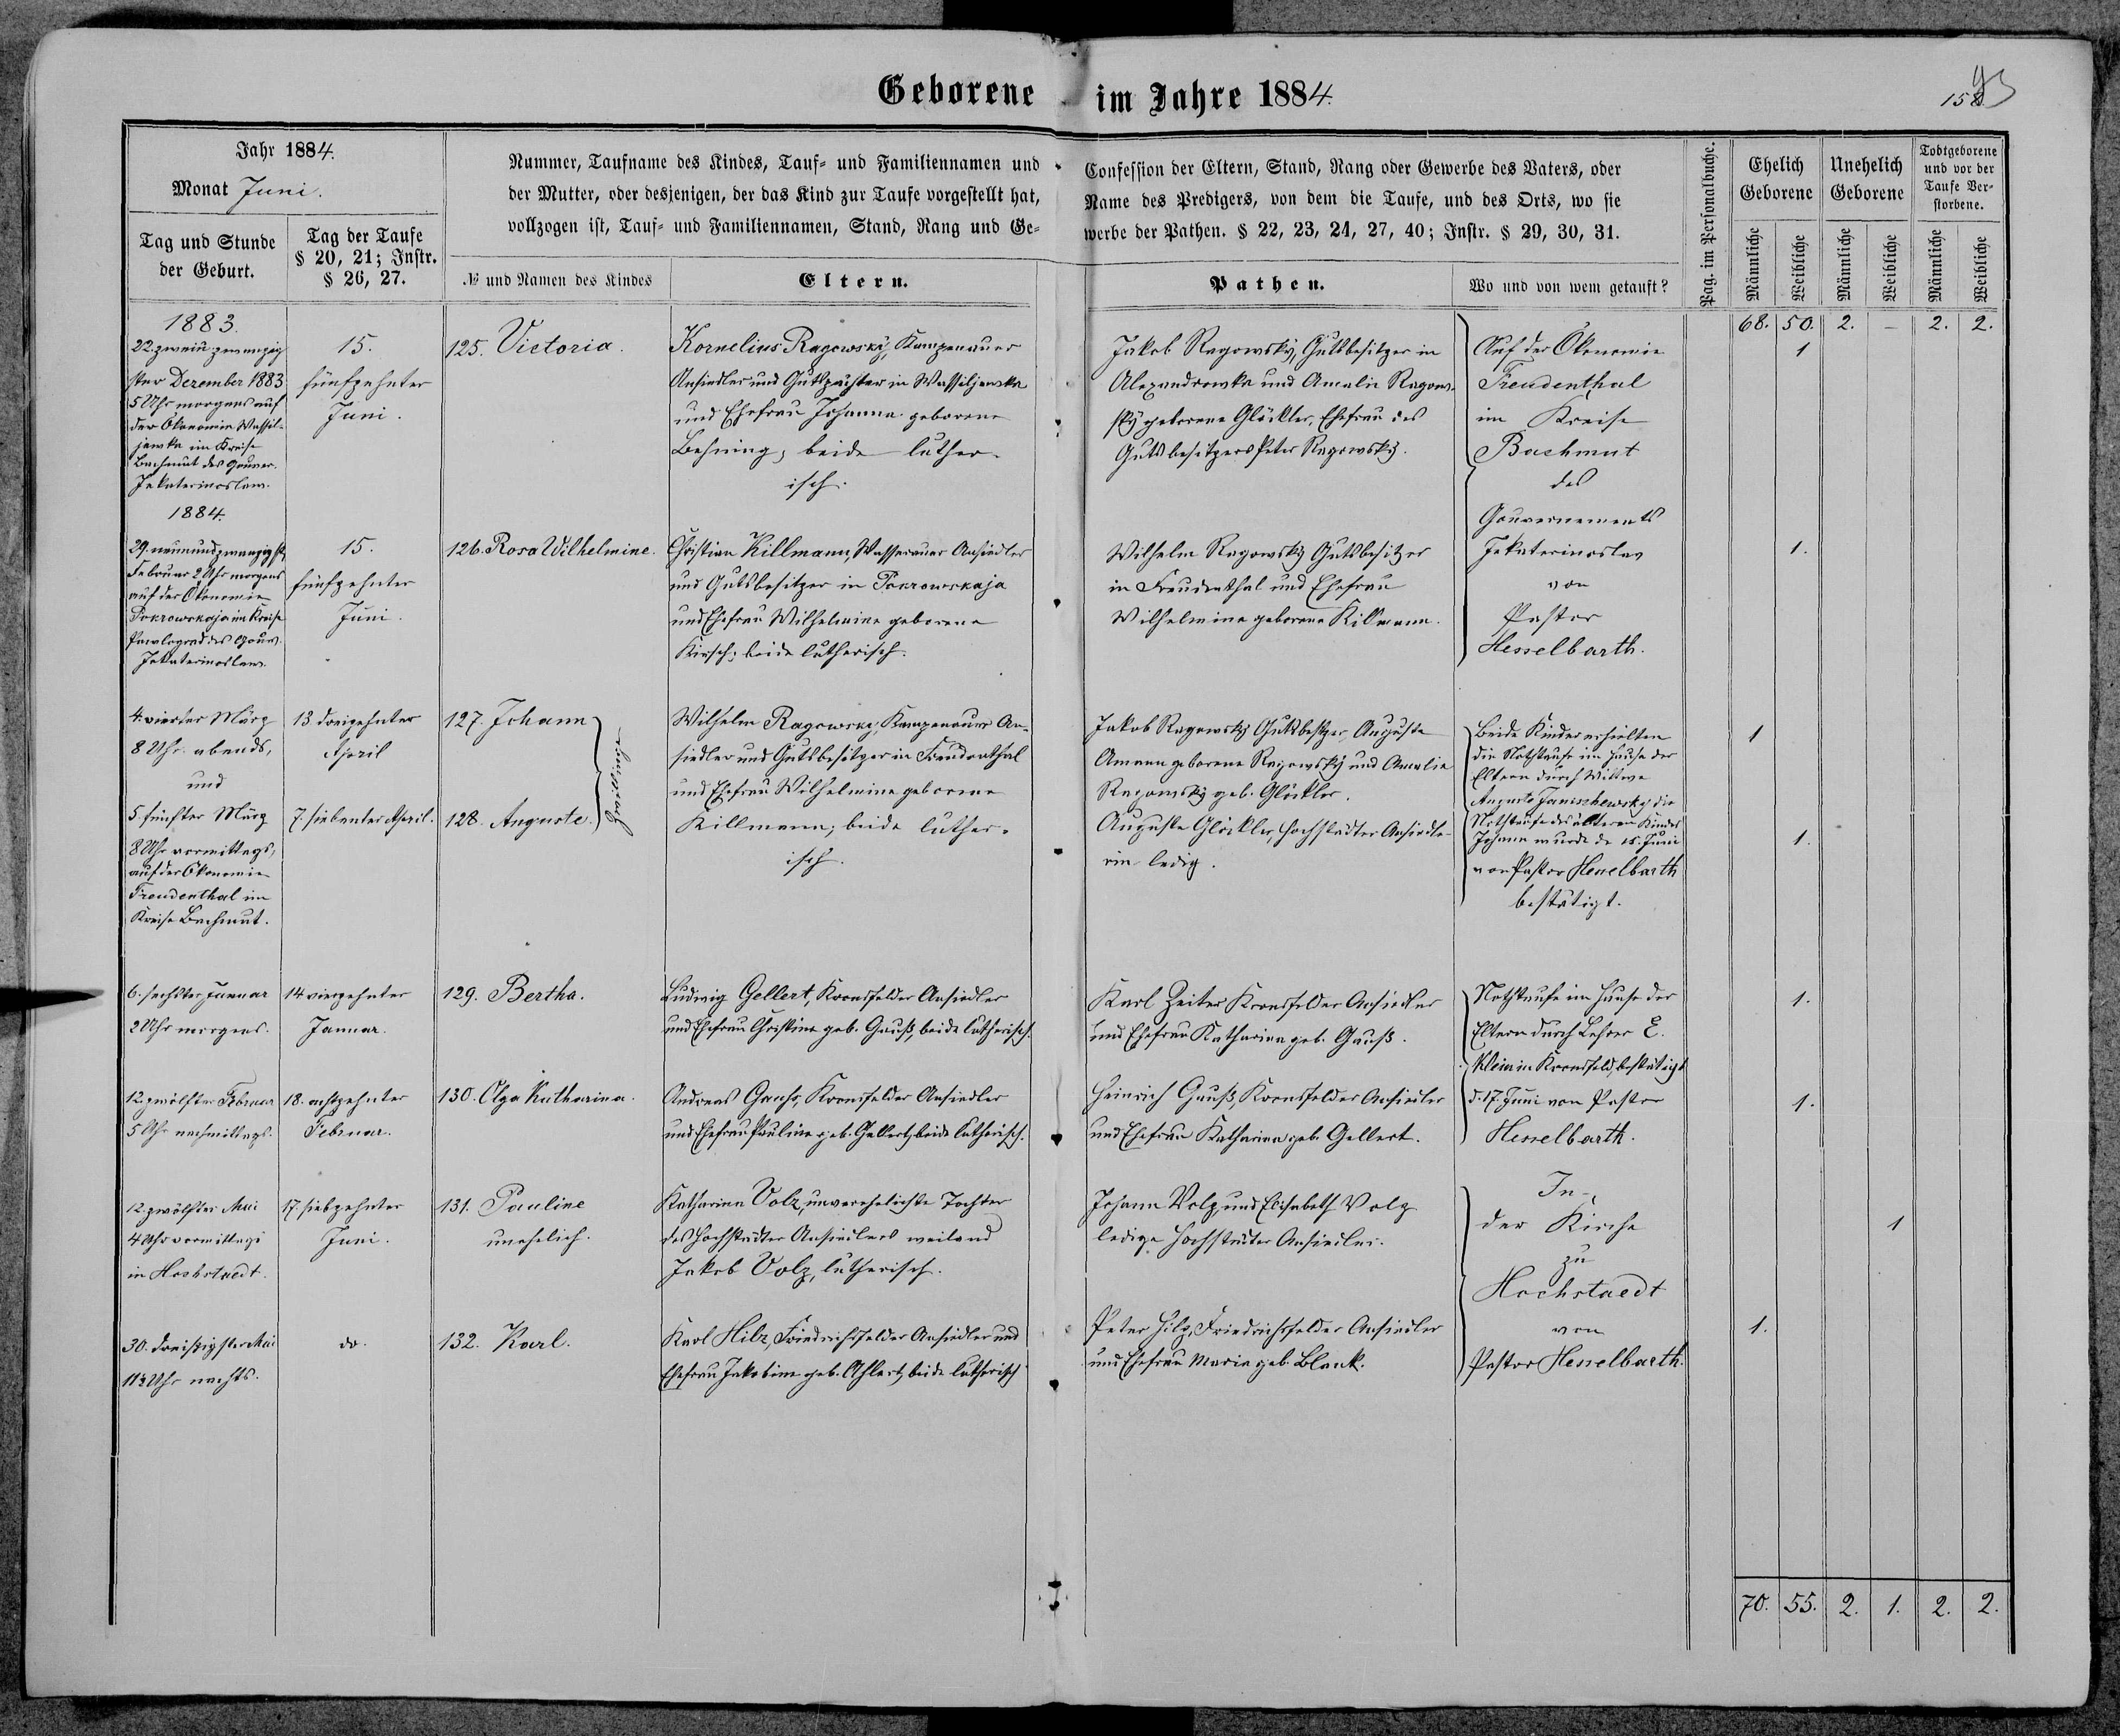 Geborene im Jahre 1884.
158
93
Jahr 1884.
Monat Juni.
Tag und Stunde
der Geburt.
Tag der Taufe
§ 20, 21; Instr.
§ 26, 27.
Nummer, Taufname des Kindes, Tauf- und Familiennamen und
der Mutter, oder desjenigen, der das Kind zur Taufe vorgestellt hat,
vollzogen ist, Tauf- und Familiennamen, Stand, Rang und Ge-
№ und Namen des Kindes
Eltern.
Confession der Eltern, Stand, Rang oder Gewerbe des Vaters, oder
Name des Predigers, von dem die Taufe, und des Orts, wo sie
werbe der Pathen. § 22, 23, 24, 27, 40; Instr. § 29, 30, 31.
Pathen.
Wo und von wem getauft?
Pag. im Personalbuche.
Ehelich
Geborene
Unehelich
Geborene
Todtgeborene
und vor der
Taufe Ver-
storbene.
Männliche
Weibliche
Männliche
Weibliche
Männliche
Weibliche
68. 50. 2. — 2. 2.
1883.
22. zweiu. zwanzig
ster Dezember 1883
5 Uhr morgens auf
der Ökonomie Wassil-
jewka im Kreise
Bachmut des Gouver.
Jekaterinoslaw.
15.
fünfzehnter
Juni.
125. Victoria.
Kornelius Ragowsky, Kampenauer
Ansiedler und Gutspächter in Wassiljewka
und Ehefrau Johanna geborene
Behning, beide luther-
isch.
Jakob Ragowsky, Gutsbesitzer in
Alexandrowka und Amalie Ragow-
sky geborene Glöckler, Ehefrau des
Gutsbesitzers Peter Ragowsky.
Auf der Ökonomie
Freudenthal
im Kreise
Bachmut
des
Gouvernements
Jekaterinoslav
von
Pastor
Hesselbarth.
1
1884.
29. neunundzwanzigst.
Februar 2 Uhr morgens
auf der Ökonomie
Pokrowskaja im Kreise
Pawlograd des Gouv.
Jekaterinoslaw.
15.
fünfzehnter
Juni.
126. Rosa Wilhelmine.
Christian Killmann, Wasserauer Ansiedler
und Gutsbesitzer in Pokrowskaja
und Ehefrau Wilhelmine geborene
Kirsch; beide lutherisch.
Wilhelm Ragowsky Gutsbesitzer
in Freudenthal und Ehefrau
Wilhelmine geborene Killmann.
1.
4. vierter März
8 Uhr abends,
und
5. fünfter März
8 Uhr vormittags,
auf der Ökonomie
Freudenthal im
Kreise Bachmut.
13. dreizehnter
April
7. siebenter April.
127. Johann
128. Auguste.
Zwillinge
Wilhelm Ragowsky, Kampenauer An-
siedler und Gutsbesitzer in Freudenthal
und Ehefrau Wilhelmine geborene
Killmann; beide luther-
isch.
Jakob Ragowsky Gutsbesitzer, Auguste
Amann geborene Ragowsky und Amalie
Ragowsky geb. Glöckler.
Auguste Glöckler, Hochstädter Ansiedle-
rin ledig.
Beide Kinder erhielten
die Nothtaufe im Hause der
Eltern durch Wittwe
Auguste Janischewsky die
Nothtaufe des älteren Kindes
Johann wurde d. 15. Juni
von Pastor Hesselbarth
bestätigt.
1
1.
6. sechster Januar
2 Uhr morgens.
14 vierzehnter
Januar.
129. Bertha.
Ludwig Gellert, Kronsfelder Ansiedler
und Ehefrau Christine geb. Gauß, beide lutherisch.
Karl Zeiter Kronsfelder Ansiedler
und Ehefrau Katharina geb. Gauß.
Nothtaufe im Hause der
Eltern durch Lehrer E.
Klein in Kronsfeld, bestätigt
d. 17. Juni von Pastor
Hesselbarth.
1.
12. zwölfter Februar
5 Uhr nachmittags.
18. achtzehnter
Februar.
130. Olga Katharina.
Andreas Gauhs, Kronsfelder Ansiedler
und Ehefrau Pauline geb. Gellert, beide lutherisch.
Heinrich Gauß, Kronsfelder Ansiedler
und Ehefrau Katharina geb. Gellert.
1.
12. zwölfter Mai
4 Uhr vormittags
in Hochstaedt.
17. siebzehnter
Juni.
131. Pauline
unehelich.
Katharina Volz, unverehelichte Tochter
des Hochstädter Ansiedlers weiland
Jakob Volz, lutherisch.
Johann Volz und Elisabeth Volz
ledige Hochstädter Ansiedler.
In
der Kirche
zu
Hochstaedt
von
Pastor Hesselbarth.
1
30. dreißigster Mai
11½ Uhr nachts.
do.
132. Karl.
Karl Hilz, Friedrichsfelder Ansiedler und
Ehefrau Jakobine geb. Ahlert, beide lutherisch
Peter Hilz, Friedrichsfelder Ansiedler
und Ehefrau Maria geb. Blank.
1.
70. 55. 2. 1. 2. 2.